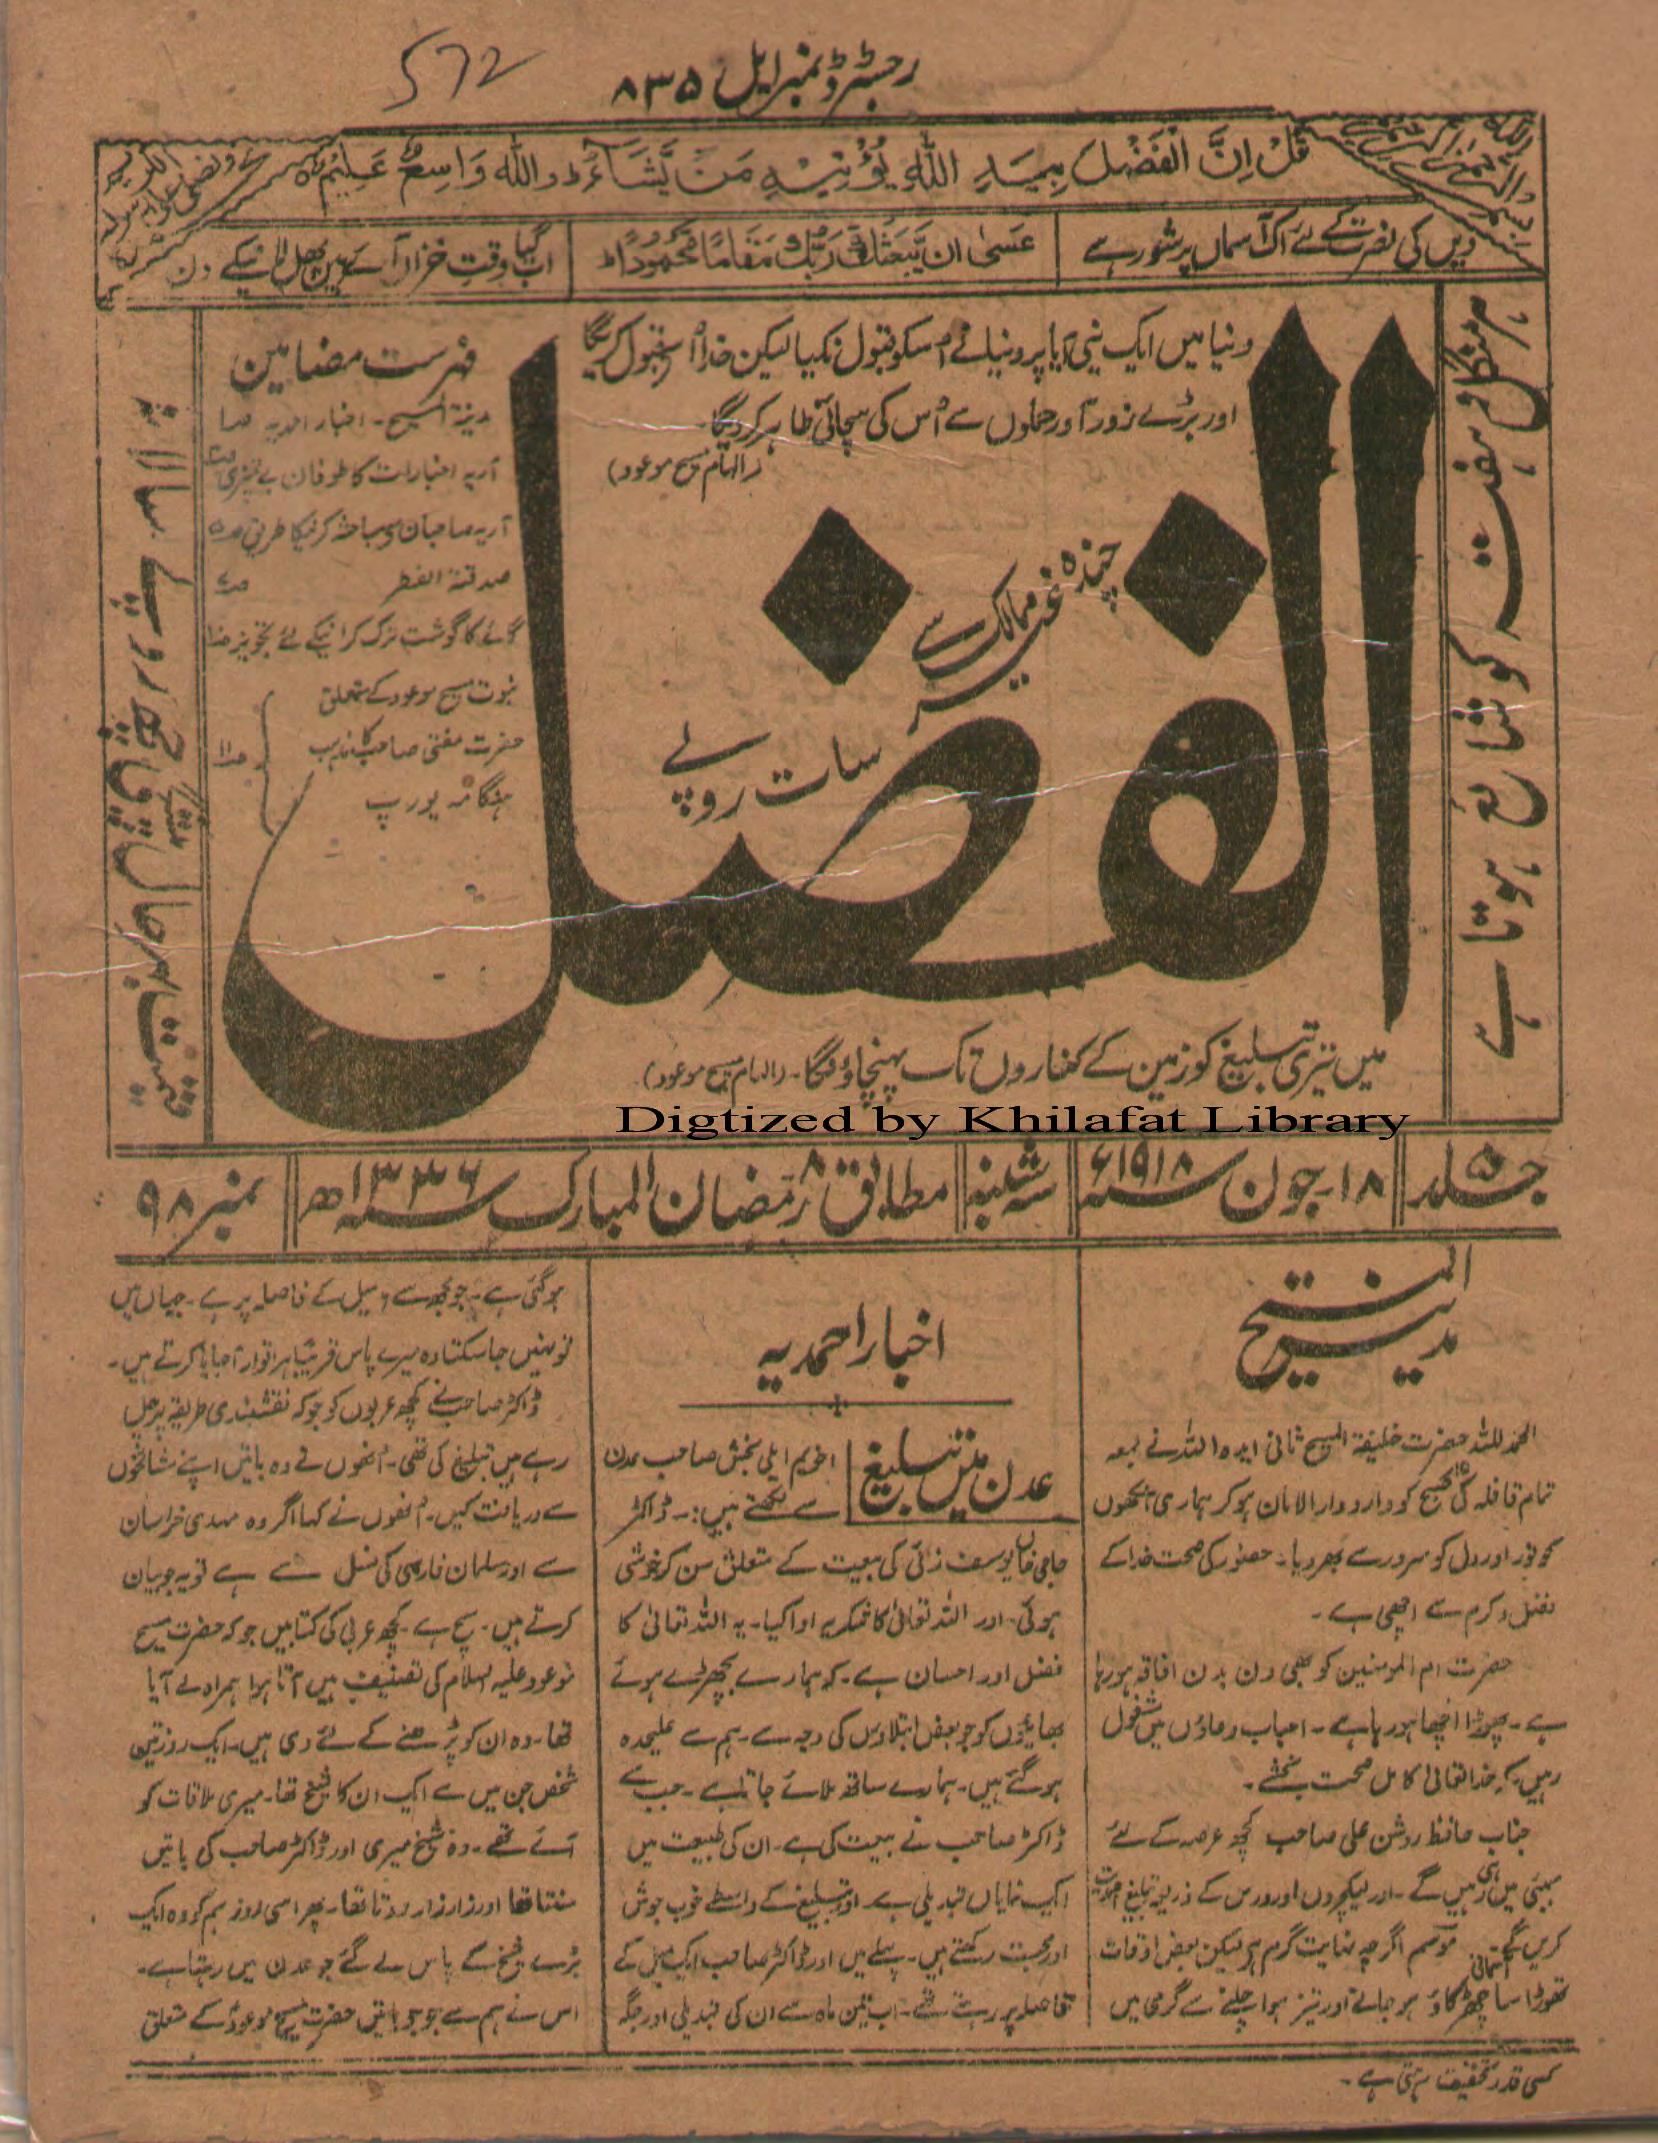 572
رجسٹرڈ نمبر ایل ۸۳۵
بسم اللہ الرحمن الرحیم
قُلْ اِنَّ الْفَضْلَ بِیَدِ اللّٰہِ یُؤْتِیْہِ مَنْ یَّشَآءُ وَاللّٰہُ وَاسِعٌ عَلِیْمٌ
نحمدہ ونصلی علی رسولہ الکریم
دیں کی نصرت کے لئے اک آسماں پر شور ہے
عَسٰی اَنْ یَّبْعَثَکَ رَبُّکَ مَقَامًا مَّحْمُوْدًا
اب گیا وقت خزاں آئے ہیں پھل لانیکے دن
ہر منگل و ہفتہ کو شائع ہوتا ہے
دنیا میں ایک نبی آیا پر دنیا نے اسکو قبول نکیا لیکن خدا اسے قبول کریگا
اور بڑے زور آور حملوں سے اُس کی سچائی ظاہر کر دیگا۔
(الہام مسیح موعود)
الفضل
چندہ غیر ممالک سے
سات روپے
میں تیری تبلیغ کو زمین کے کناروں تک پہنچاؤنگا۔ (الہام مسیح موعود)
Digtized by Khilafat Library
فہرست مضامین
مدینۃ المسیح۔ اخبار احمدیہ صـ۱
آریہ اخبارات کا طوفان بے تمیزی
آریہ صاحبان و مباحثہ کرنیکا طریق صـ۵
صدقۃ الفطر
گائے کا گوشت ترک کرانیکے لئے تجویز صـ۱۰
نبوت مسیح موعود کے متعلق
حضرت مفتی صاحب کا مذہب صـ۱۱
ہنگامہ یورپ
قیمت بہرحال پیشگی چھ روپے سالانہ
جلد ۵
۱۸۔ جون سنہ ۱۹۱۸ء
سہ شنبہ
مطابق ۸ رمضان المبارک سنہ ۱۳۳۶ھ
نمبر ۹۸
مدینۃ المسیح
الحمد للہ حضرت خلیفۃ المسیح ثانی ایدہ اللہ نے بمعہ
تمام قافلہ کی صبح کو وارد دار الامان ہو کر ہماری آنکھوں
کو نور اور دل کو سرور سے بھر دیا۔ حضور کی صحت خدا کے
فضل و کرم سے اچھی ہے۔
حضرت ام المومنین کو بھی دن بدن افاقہ ہو رہا
ہے۔ پھوڑا اچھا ہو رہا ہے۔ احباب دعاؤں میں مشغول
رہیں کہ خدا تعالیٰ کامل صحت بخشے۔
جناب حافظ روشن علی صاحب کچھ عرصہ کے لئے
بمبئی میں ہی رہیں گے۔ اور لیکچروں اور درس کے ذریعہ تبلیغ احمدیت
کریں گے۔ موسم اگرچہ نہایت گرم ہے لیکن بعض اوقات
تھوڑا سا آسمانی چھڑکاؤ ہو جانے اور تیز ہوا چلنے سے گرمی میں
کسی قدر تخفیف ہو جاتی ہے۔
اخبار احمدیہ
عدن میں تبلیغ
اخویم الٰہی بخش صاحب عدن
سے لکھتے ہیں:۔ ڈاکٹر
حاجی خان یوسف زئی کی بیعت کے متعلق سن کر خوشی
ہوئی۔ اور اللہ تعالیٰ کا شکریہ ادا کیا۔ یہ اللہ تعالیٰ کا
فضل اور احسان ہے۔ کہ ہمارے بچھڑے ہوئے
بھائیوں کو جو بعض ابتلاؤں کی وجہ سے۔ ہم سے علیحدہ
ہو گئے ہیں۔ ہمارے ساتھ ملائے جاتا ہے۔ جب سے
ڈاکٹر صاحب نے بیعت کی ہے۔ ان کی طبیعت میں
ایک نمایاں تبدیلی ہے۔ اور تبلیغ کے واسطے خوب جوش
اور محبت رکھتے ہیں۔ پہلے میں اور ڈاکٹر صاحب ایک میل کے
فاصلہ پر رہتے تھے۔ اب تین ماہ سے ان کی تبدیلی اور جگہ
ہو گئی ہے۔ جو مجھ سے میل کے فاصلہ پر ہے۔ جہاں میں
تو نہیں جا سکتا وہ میرے پاس قریبًا ہر اتوار آ جایا کرتے ہیں۔
ڈاکٹر صاحب نے کچھ عربوں کو جو کہ نقشبندی طریقہ پر چل
رہے ہیں تبلیغ کی تھی۔ انھوں نے وہ باتیں اپنے مشائخوں
سے دریافت کیں۔ انھوں نے کہا اگر وہ مہدی خراسان
سے اور سلمان فارسی کی نسل سے ہے تو یہ جو بیان
کرتے ہیں۔ سچ ہے۔ کچھ عربی کی کتابیں جو کہ حضرت مسیح
موعود علیہ السلام کی تصنیف ہیں آتا ہوا ہمراہ لے آیا
تھا۔ وہ ان کو پڑھنے کے لئے دی ہیں۔ ایک روز تین
شخص جن میں سے ایک ان کا شیخ تھا۔ میری ملاقات کو
آئے تھے۔ وہ شیخ میری اور ڈاکٹر صاحب کی باتیں
سنتا تھا اور زار زار روتا تھا۔ پھر اسی روز ہم کو وہ ایک
بڑے شیخ کے پاس لے گئے جو عدن میں رہتا ہے۔
اس نے ہم سے جو جو باتیں حضرت مسیح موعودؑ کے متعلق